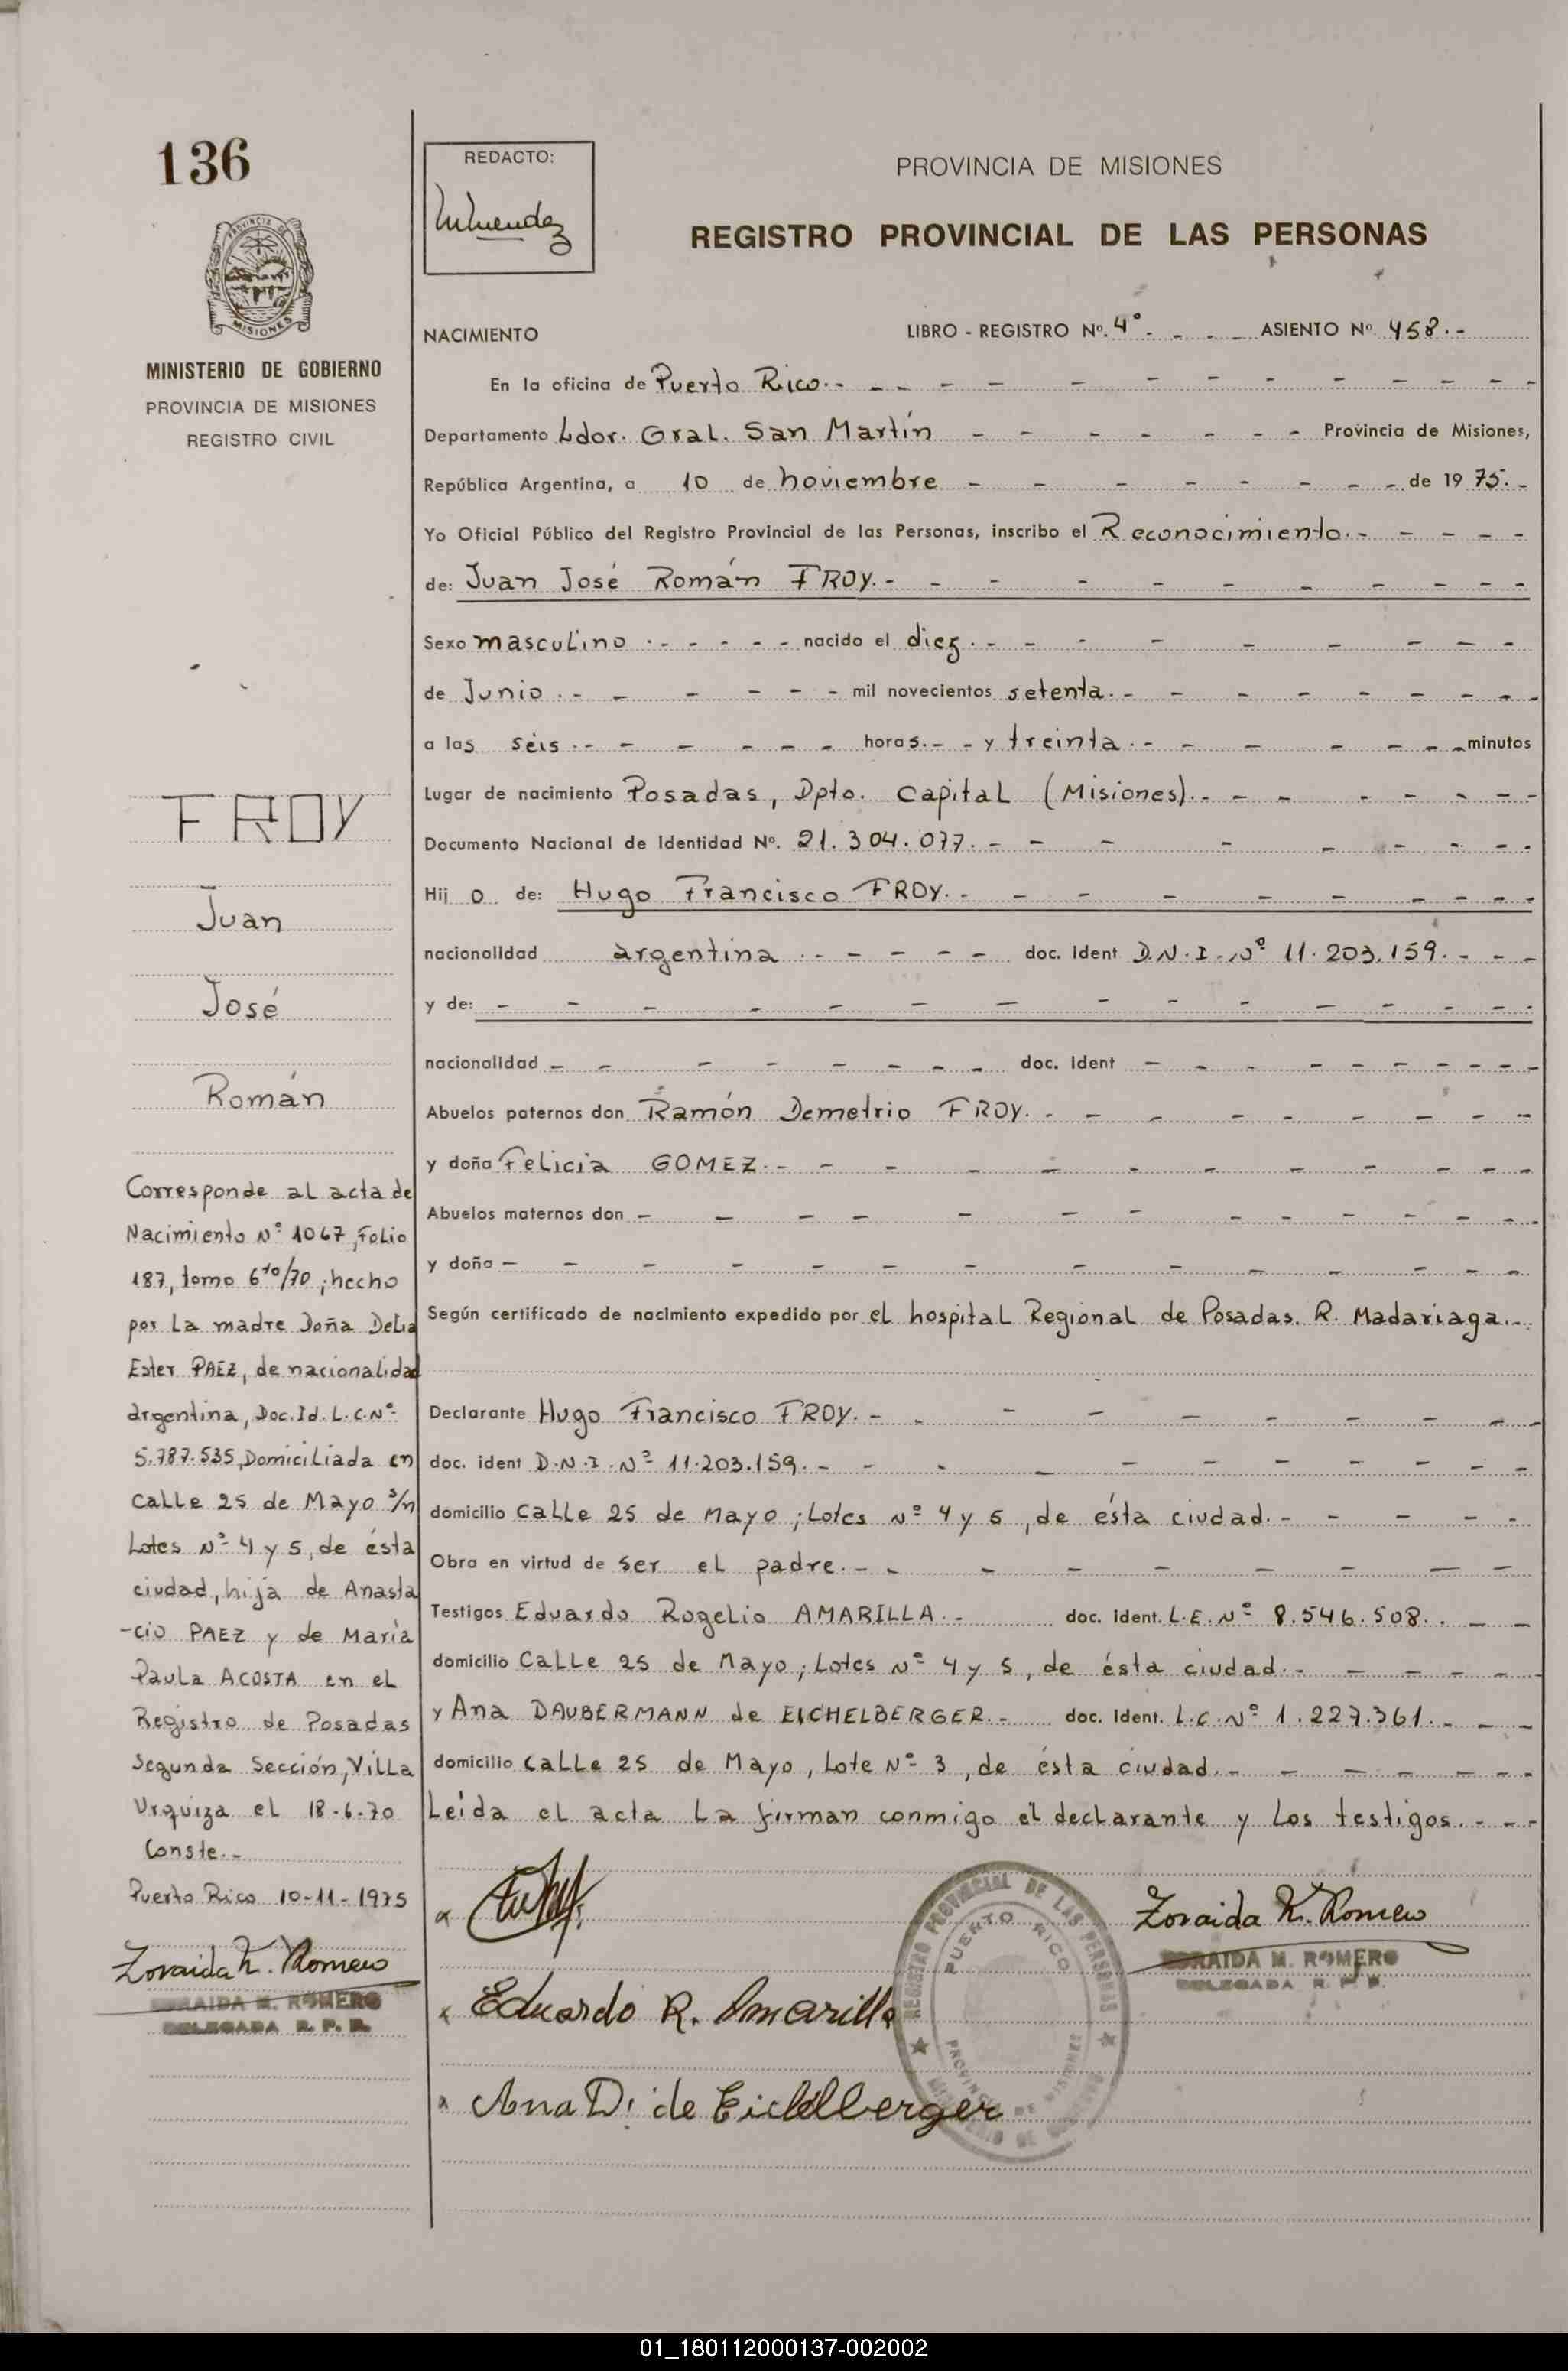 136
REDACTO:
PROVINCIA DE MISIONES
REGISTRO PROVINCIAL DE LAS PERSONAS
PROVINCIA DE
MISIONES
MINISTERIO DE GOBIERNO
PROVINCIA DE MISIONES
REGISTRO CIVIL
NACIMIENTO LIBRO - REGISTRO Nº. 4º.- - - - ASIENTO Nº 458.-
En la oficina de Puerto Rico.-
Departamento Ldor. Gral. San Martín - - - - Provincia de Misiones,
República Argentina, a 10 de noviembre - - - - de 1975.-
Yo Oficial Público del Registro Provincial de las Personas, inscribo el Reconocimiento.-
de: Juan José Román FROY.-
Sexo masculino.- - - - nacido el diez.-
de Junio.- - - - mil novecientos setenta.-
a las séis.- - - - horas.- - y treinta.- - - - minutos
Lugar de nacimiento Posadas, Dpto. Capital (Misiones).-
Documento Nacional de Identidad Nº. 21.304.077.-
Hij o de: Hugo Francisco FROY.-
nacionalidad argentina.- - - - doc. ident D.N.I. Nº 11.203.159.-
y de: -
nacionalidad - - - - doc. Ident -
Abuelos paternos don Ramón Demetrio FROY.-
y doña Felicia GOMEZ.-
Abuelos maternos don -
y doña -
Según certificado de nacimiento expedido por el hospital Regional de Posadas. R. Madariaga.-
Declarante Hugo Francisco FROY.-
doc. ident D.N.I. Nº 11.203.159.-
domicilio calle 25 de Mayo; Lotes Nº 4 y 5, de ésta ciudad.-
Obra en virtud de ser el padre.-
Testigos Eduardo Rogelio AMARILLA.- doc. ident. L.E. Nº 8.546.508.-
domicilio Calle 25 de Mayo; Lotes Nº 4 y 5, de ésta ciudad.-
y Ana DAUBERMANN de EICHELBERGER.- doc. Ident. L.C. Nº 1.227.361.-
domicilio calle 25 de Mayo, Lote Nº 3, de ésta ciudad.-
Leída el acta la firman conmigo el declarante y los testigos.-
FROY
Juan
José
Román
Corresponde al acta de
Nacimiento Nº 1067, Folio
187, tomo 6to/70; hecho
por la madre Doña Delia
Ester PAEZ, de nacionalidad
argentina, Doc. Id. L.C. Nº
5.787.535, Domiciliada en
calle 25 de Mayo s/n
Lotes Nº 4 y 5, de ésta
ciudad, hija de Anasta
-cio PAEZ y de María
Paula ACOSTA en el
Registro de Posadas
Segunda Sección, Villa
Urquiza el 18-6-70
Conste.-
Puerto Rico 10-11-1975
Zoraida M. Romero
ZORAIDA M. ROMERO
DELEGADA R. P. P.
Eduardo R. Amarilla
Ana D. de Eichelberger
REGISTRO PROVINCIAL DE LAS PERSONAS
PUERTO RICO
PROVINCIA DE MISIONES
Zoraida M. Romero
ZORAIDA M. ROMERO
DELEGADA R. P. P.
01_180112000137-002002